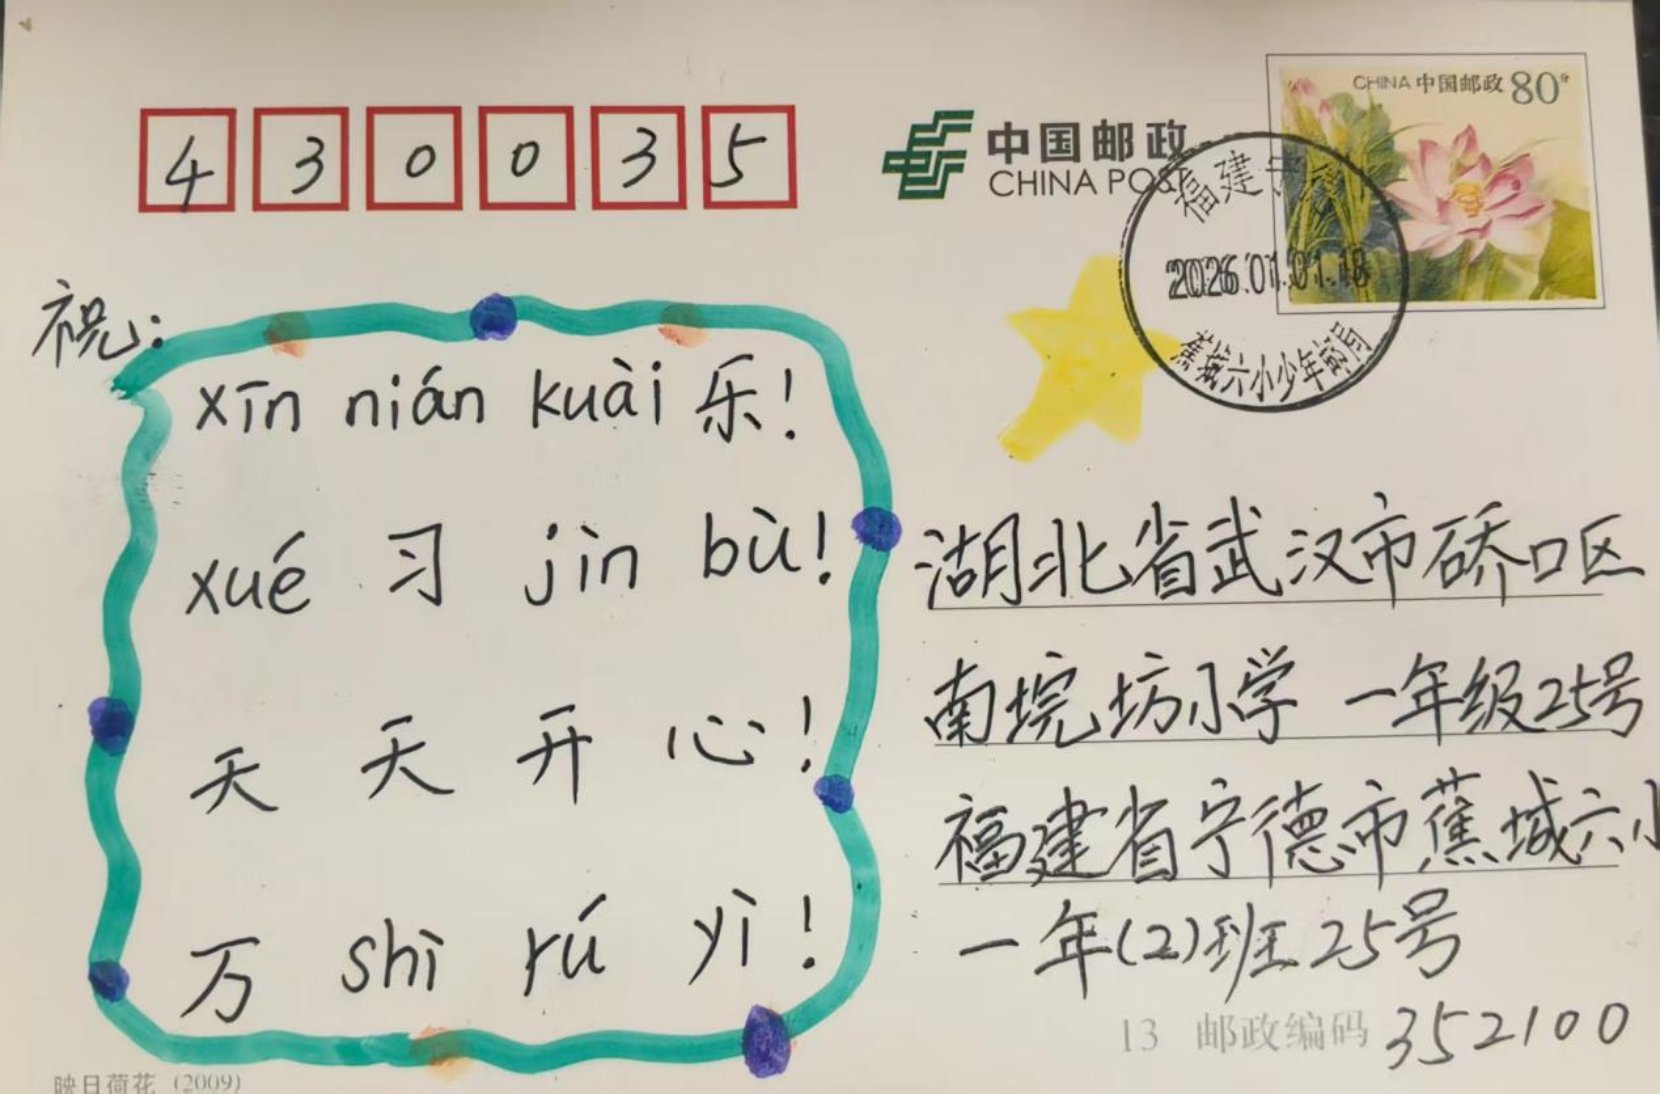 430035
中国邮政
CHINA POST
CHINA 中国邮政 80分
福建宁德
2026.01.01.18
蕉城六小少年邮局
祝:
xīn nián kuài 乐!
xué 习 jìn bù!
天 天 开 心!
万 shì rú yì!
湖北省武汉市硚口区
南垸坊小学 一年级25号
福建省宁德市蕉城六小
一年(2)班25号
13 邮政编码 352100
映日荷花 (2009)